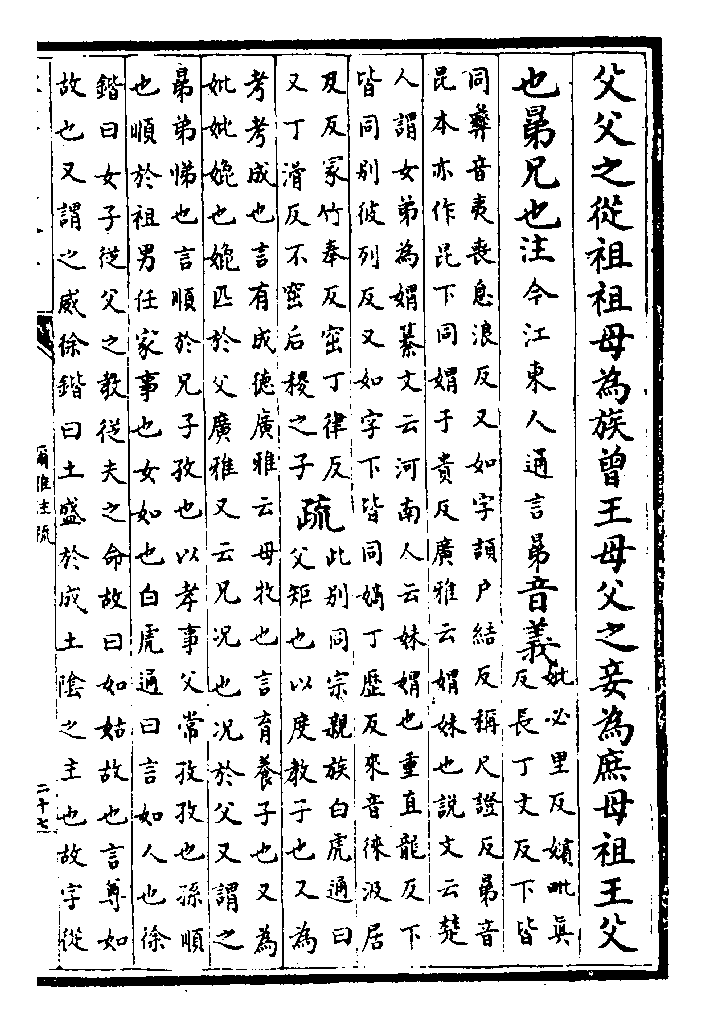 父父之從祖祖母為族曾王母父之妾為庶母祖王父
也晜兄也注今江東人通言晜音義
妣必里反嬪毗真
反長丁丈反下皆
同彝音夷喪息浪反又如字頡戶結反稱尺證反晜音
昆本亦作昆下同媦于貴反廣雅云媦妹也說文云楚
人謂女弟為媦纂文云河南人云妹媦也重直龍反下
皆同别彼列反又如字下皆同嫡丁歷反來音徠汲居
及反冡竹奉反窋丁律反
又丁滑反不窋后稷之子
疏
此别同宗親族白虎通曰
父矩也以度教子也又為
考考成也言有成德廣雅云母牧也言育養子也又為
妣妣媲也媲匹於父廣雅又云兄况也况於父又謂之
晜弟悌也言順於兄子孜也以孝事父常孜孜也孫順
也順於祖男任家事也女如也白虎通曰言如人也徐
鍇曰女子從父之教從夫之命故曰如姑故也言尊如
故也又謂之威徐鍇曰土盛於戌土陰之主也故字從
爾雅注疏
二十七